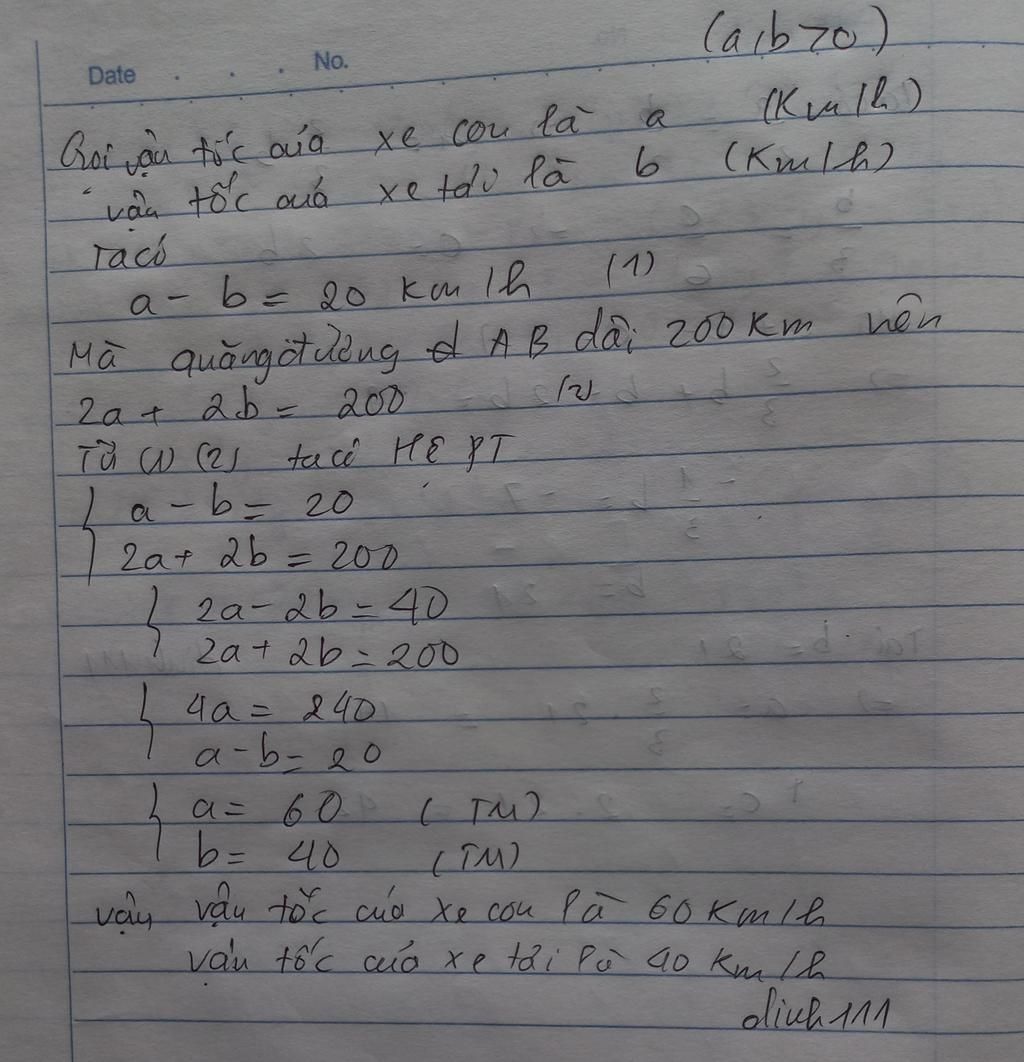 (a,b>0)
Date . . . No.
Gọi vận tốc của xe con là a (Km/h)
vận tốc của xe tải là b (Km/h)
Ta có
a - b = 20 km/h (1)
Mà quãng đường AB dài 200 Km nên
2a + 2b = 200 (2)
Từ (1) (2) ta có HỆ PT
{ a - b = 20
2a + 2b = 200
{ 2a - 2b = 40
2a + 2b = 200
{ 4a = 240
a - b = 20
{ a = 60 (TM)
b = 40 (TM)
vậy vận tốc của xe con là 60 Km/h
vận tốc của xe tải là 40 Km/h
dinh111